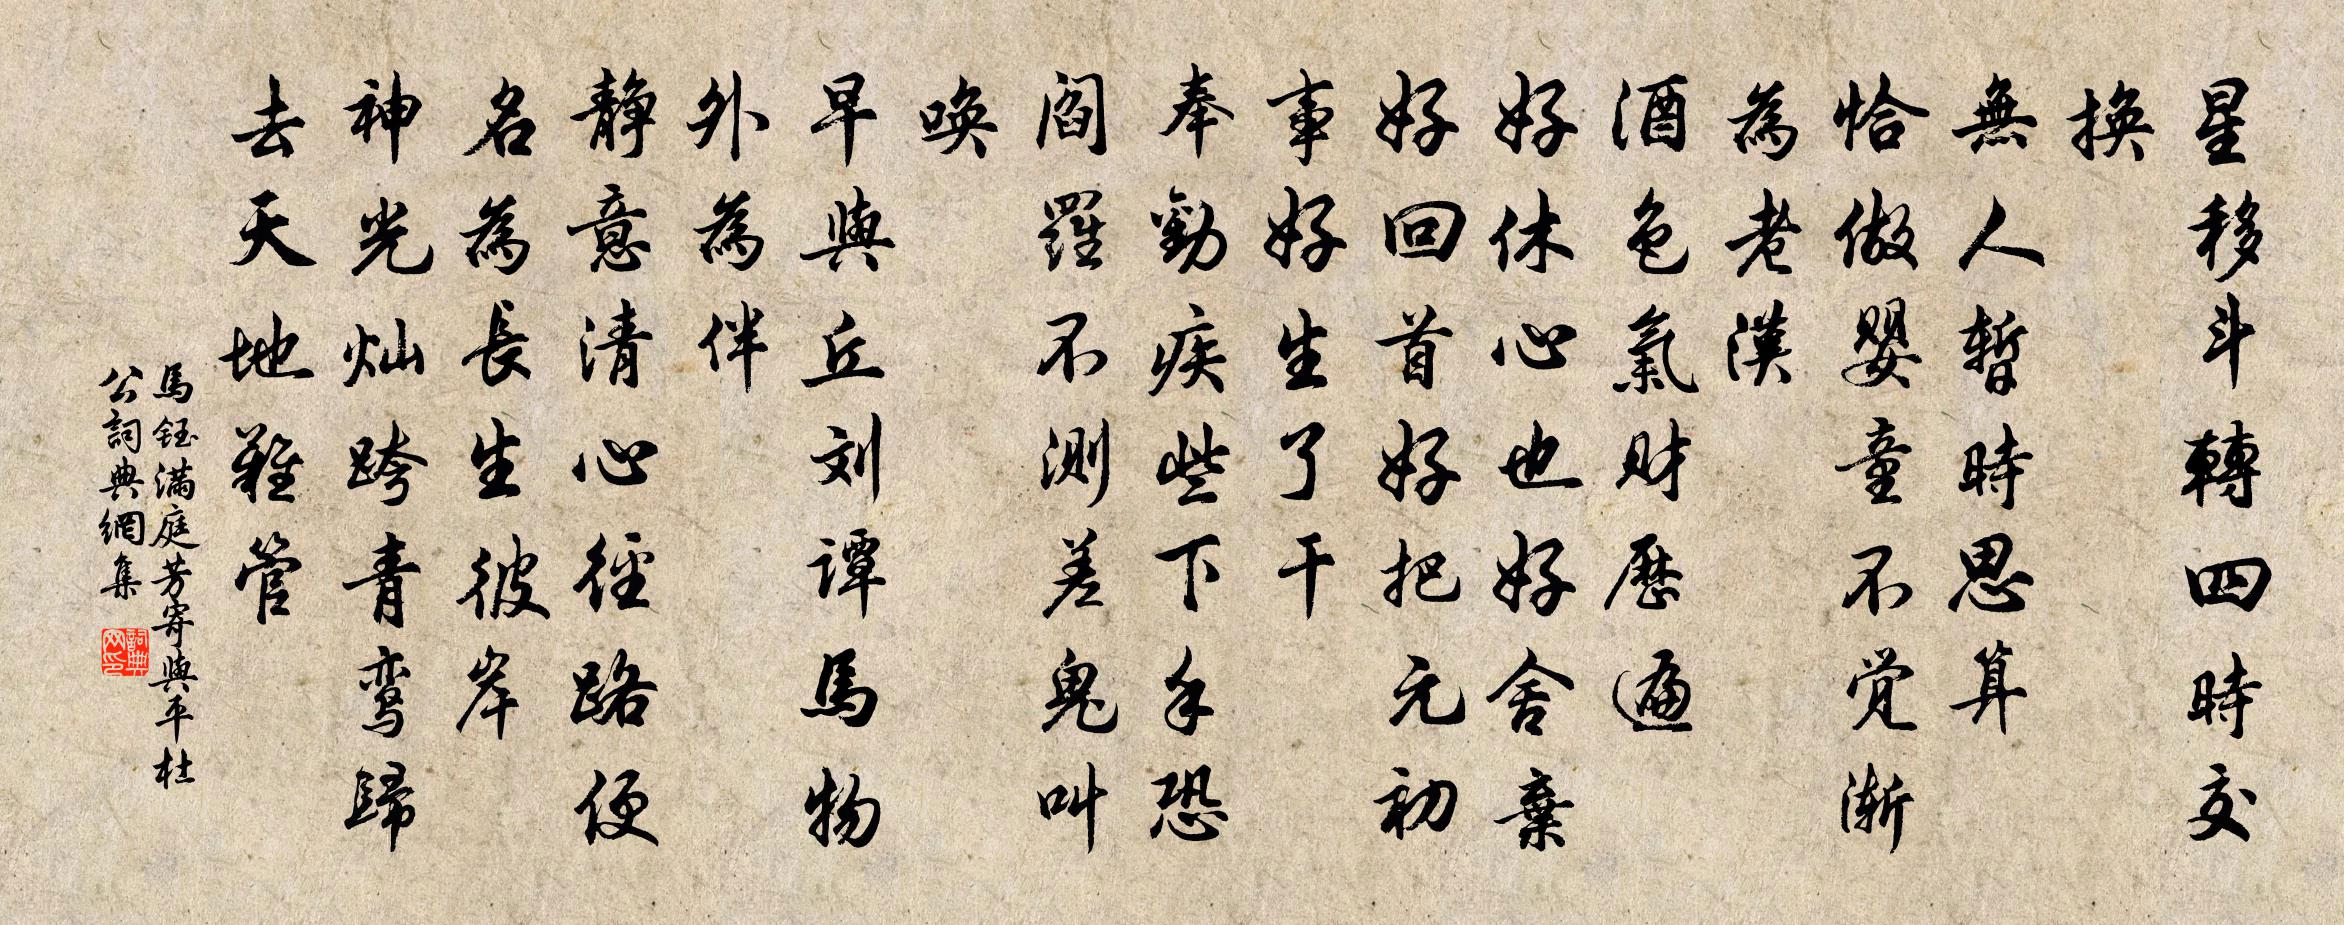 星移斗轉四時交
換
無人暫時思算
恰做嬰童不觉渐
為老漢
酒色氣财歷遍
好休心也好舍棄
好回首好把元初
事好生了干
奉勸疾些下手恐
閻羅不测差鬼叫
唤
早與丘刘谭馬物
外為伴
静意清心徑路便
名為長生彼岸
神光灿跨青鸾歸
去天地難管
馬鈺满庭芳寄與平杜
公詞典網集
詞典网印